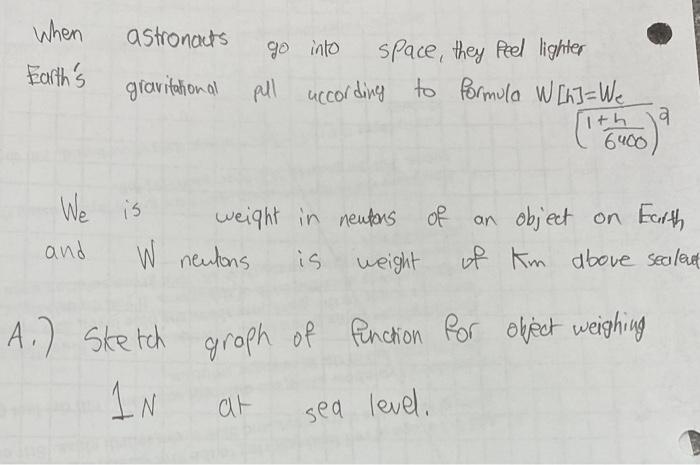 When astronauts go into space, they feel lighter
Earth's gravitational pull according to formula W[h]=We
(1+h
6400)2
We is weight in newtons of an object on Earth,
and W newtons is weight of Km above sealevel
A.) Sketch graph of function for object weighing
1N at sea level.